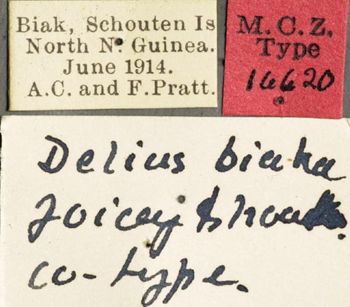 Biak, Schouten Is
North N. Guinea.
June 1914.
A.C. and F. Pratt.
M.C.Z.
Type
16620
Delias biaka
Joicey &
co-type.